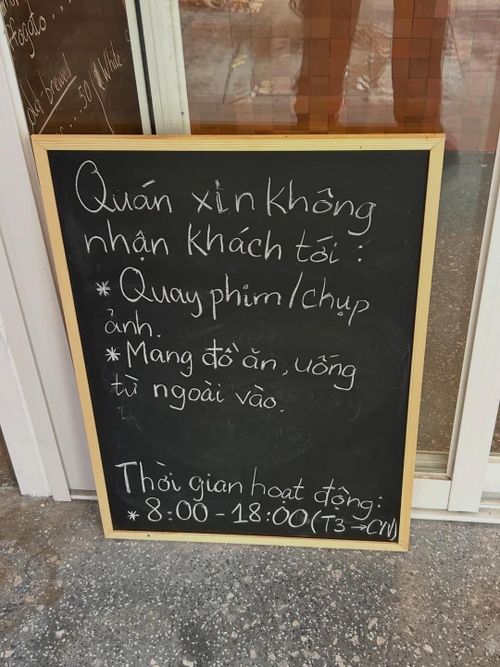 Frogato...
White
50
Quán xin không
nhận khách tới :
* Quay phim/chụp
ảnh.
* Mang đồ ăn, uống
từ ngoài vào.
Thời gian hoạt động:
* 8:00 - 18:00 (T3 → CN)